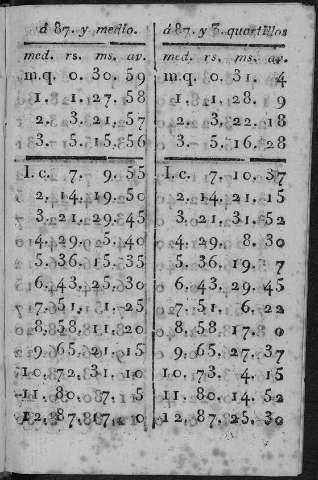 á 87. y medio.
med. rs. ms. av.
m.q. 0. 30. 59
1. 1. 27. 58
2. 3. 21. 57
3. 5. 15. 56
1.c. 7. 9. 55
2. 14. 19. 50
3. 21. 29. 45
4. 29. 5. 40
5. 36. 15. 35
6. 43. 25. 30
7. 51. 1. 25
8. 58. 11. 20
9. 65. 21. 15
10. 72. 31. 10
11. 80. 7. 5
12. 87. 17. 0
á 87. y 3. quartillos
med. rs. ms. av.
m.q. 0. 31. 4
1. 1. 28. 9
2. 3. 22. 18
3. 5. 16. 28
1.c. 7. 10. 37
2. 14. 21. 15
3. 21. 31. 52
4. 29. 8. 30
5. 36. 19. 7
6. 43. 29. 45
7. 51. 6. 22
8. 58. 17. 0
9. 65. 27. 37
10. 73. 4. 15
11. 80. 14. 52
12. 87. 25. 30